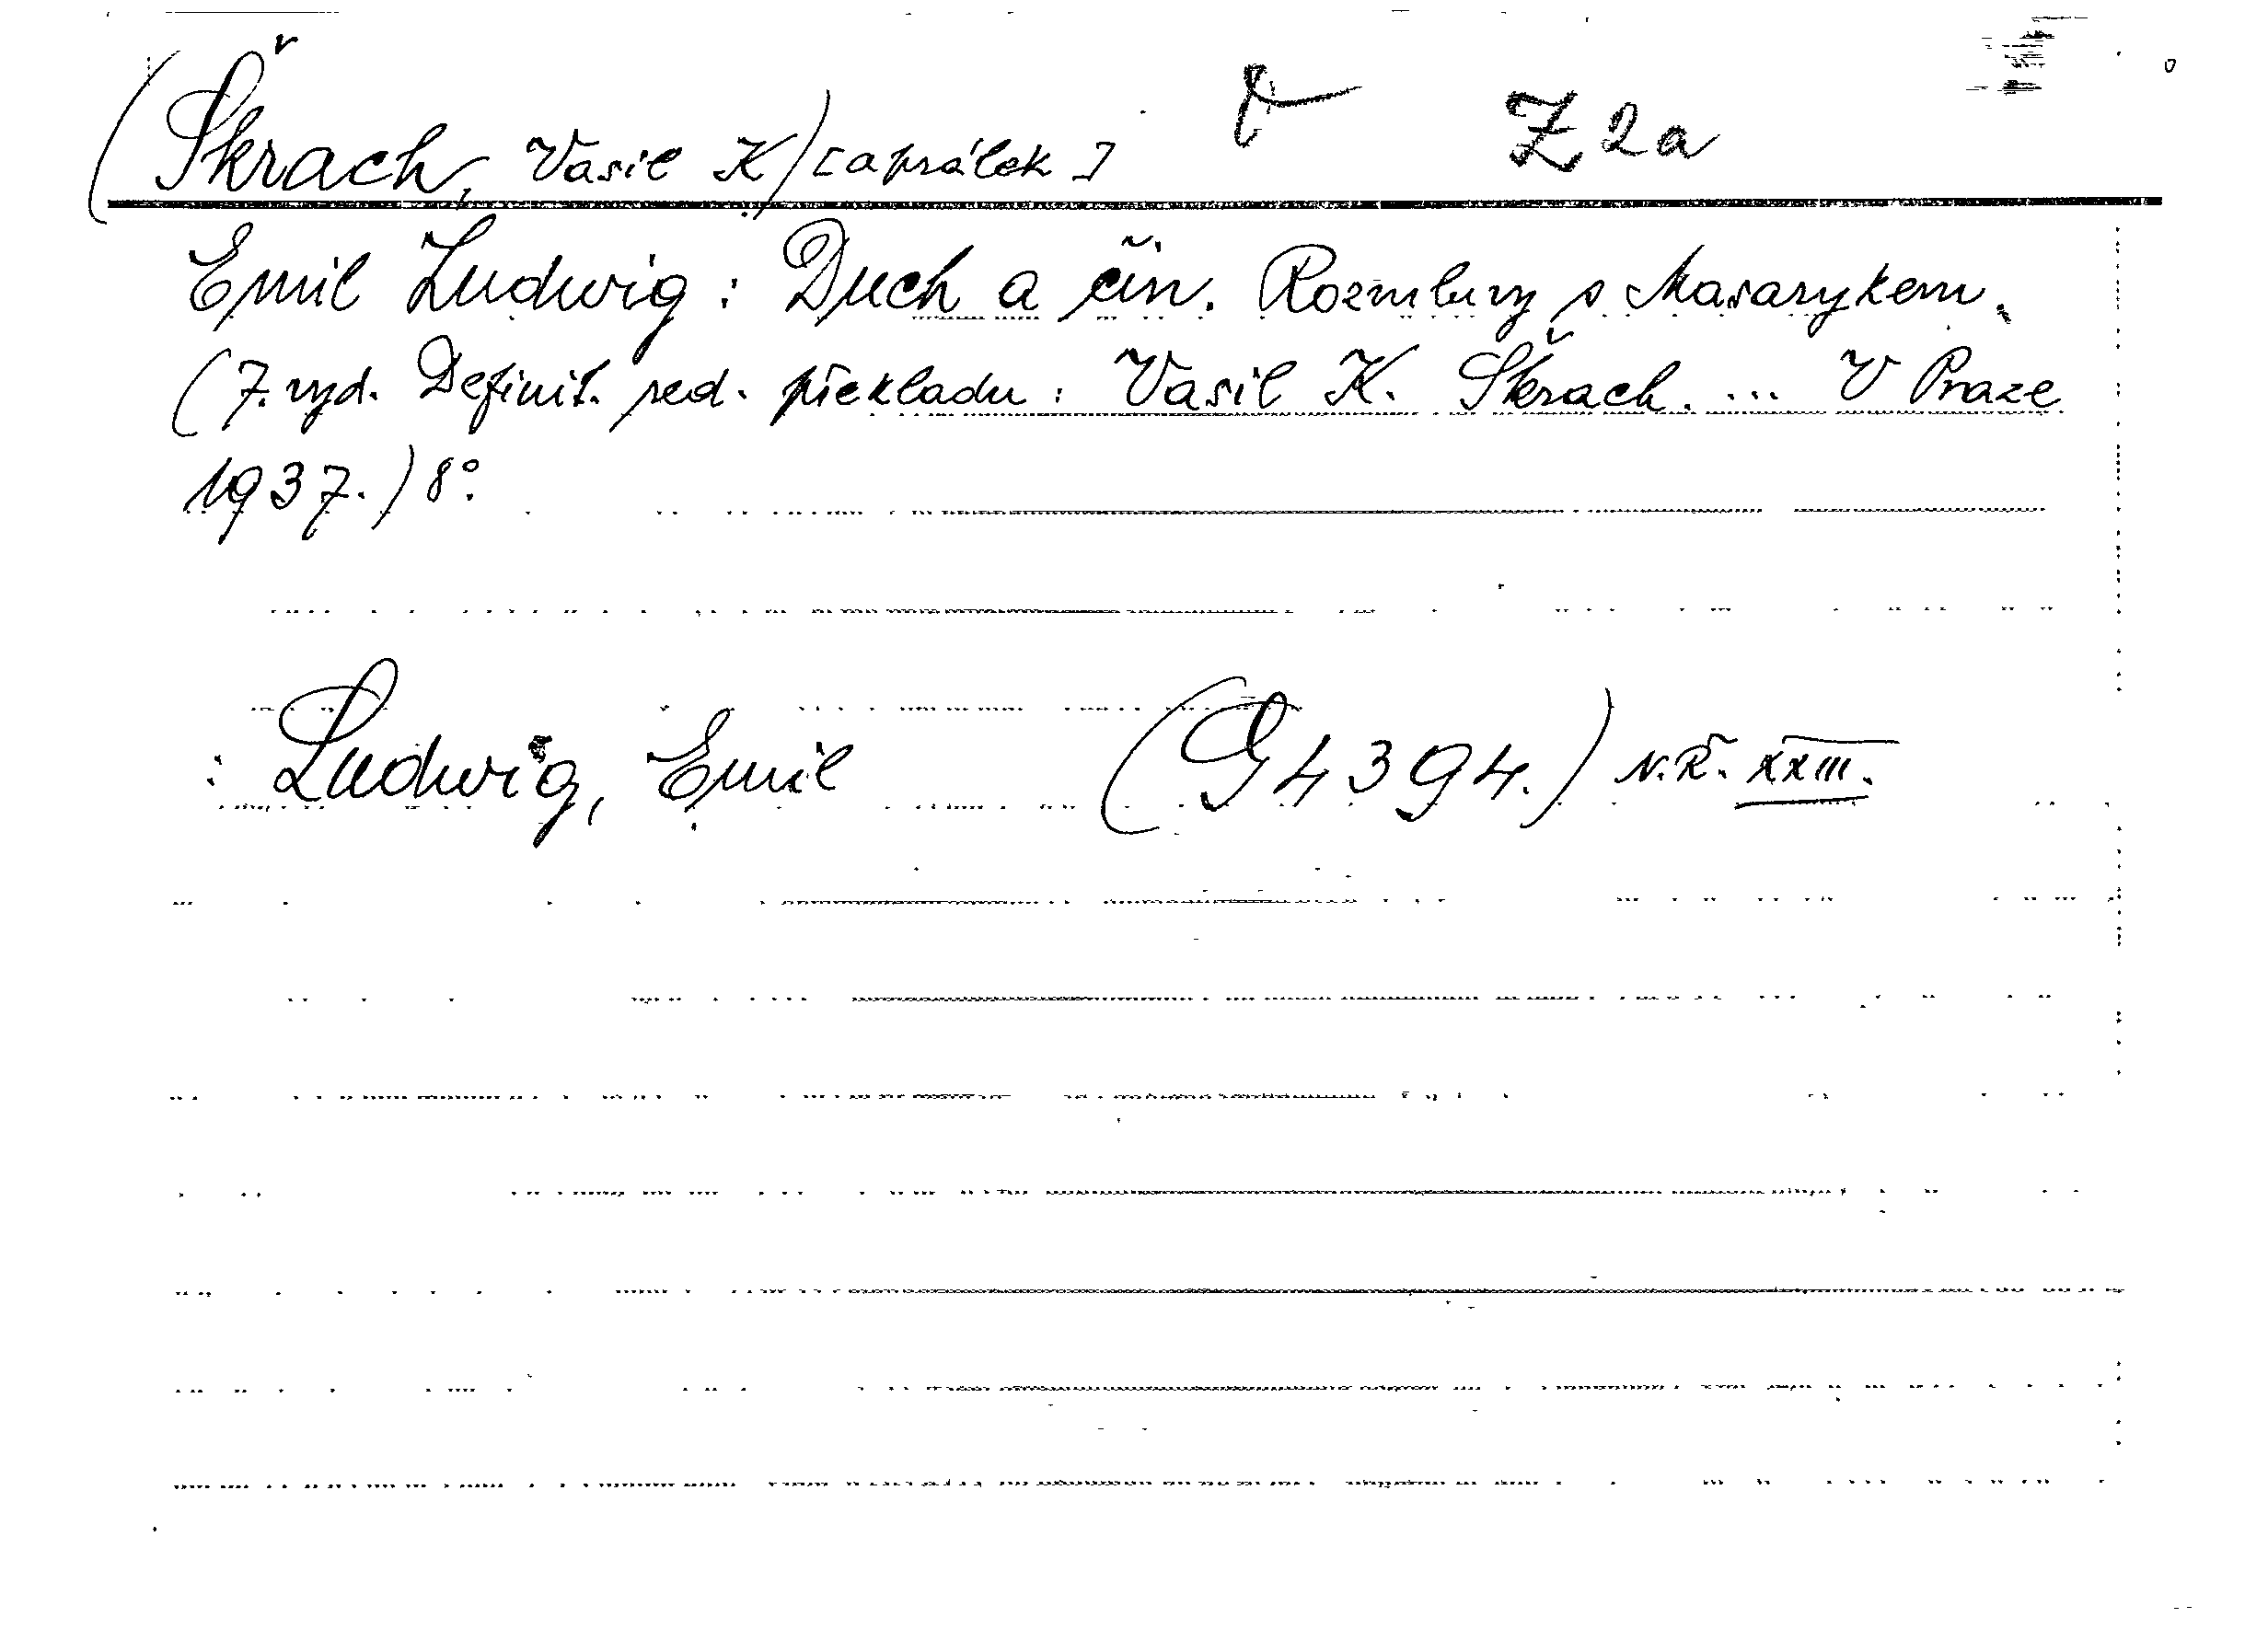 (Škrach, Vasil K)[aprálek] Z 2a
Emil Ludwig: Duch a čin. Rozmluvy s Masarykem.
(7. vyd. Definit. red. překladu: Vasil K. Škrach. ... V Praze
1937.) 8°.
: Ludwig, Emil (G 4394.) N.Ř. XXIII.